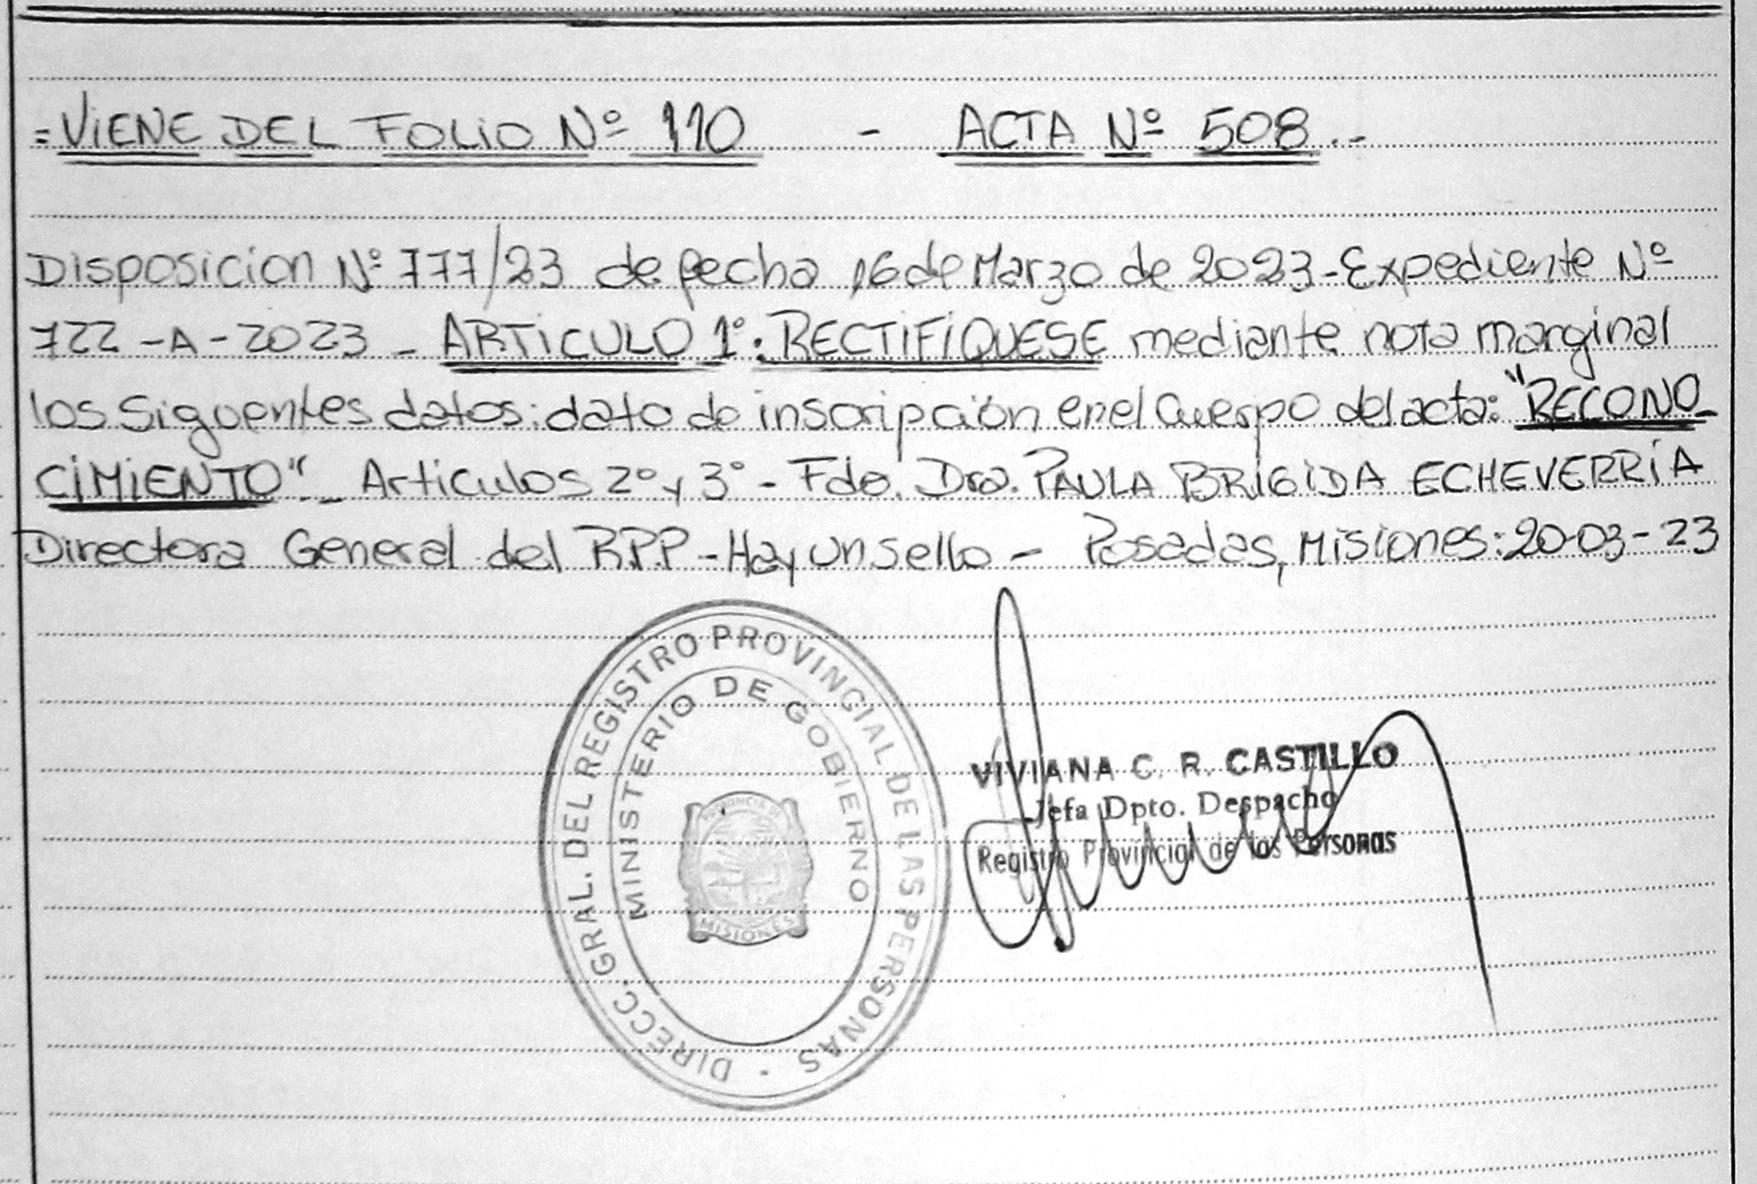 =VIENE DEL FOLIO Nº 110 - ACTA Nº 508.-
Disposicion Nº 777/23 de fecha 16 de Marzo de 2023-Expediente Nº
722-A-2023_ ARTICULO 1º: RECTIFÍQUESE mediante nota marginal
los Siguentes datos: dato de inscripción en el Cuerpo del acta: "RECONO_
CIMIENTO"_ Articulos 2º y 3º - Fdo. Dra. PAULA BRIGIDA ECHEVERRÍA
Directora General del RPP - Hay un sello - Posadas, Misiones: 20-03-23
DIRECC. GRAL. DEL REGISTRO PROVINCIAL DE LAS PERSONAS
MINISTERIO DE GOBIERNO
PROVINCIA DE
MISIONES
VIVIANA C. R. CASTILLO
Jefa Dpto. Despacho
Registro Provincial de las Personas